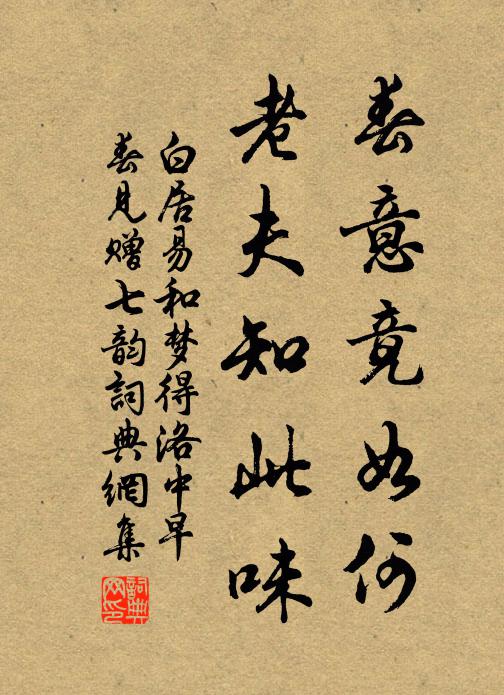 春意竟如何
老夫知此味
白居易和梦得洛中早
春見贈七韵詞典網集
詞典网印